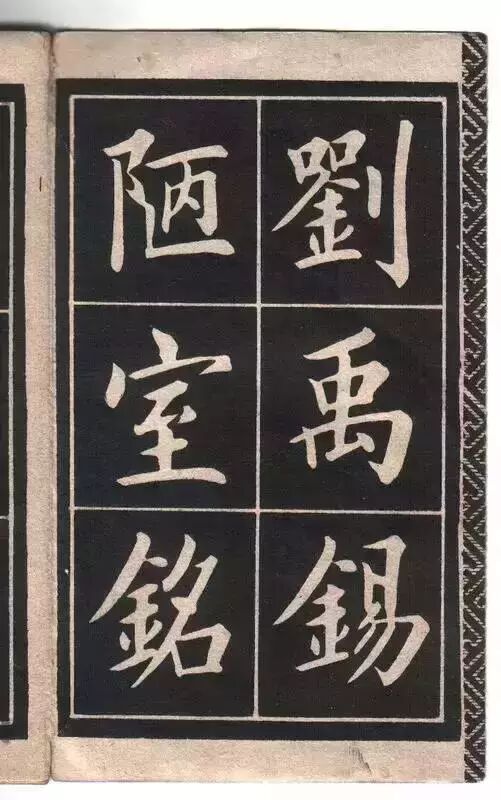 劉禹錫
陋室銘